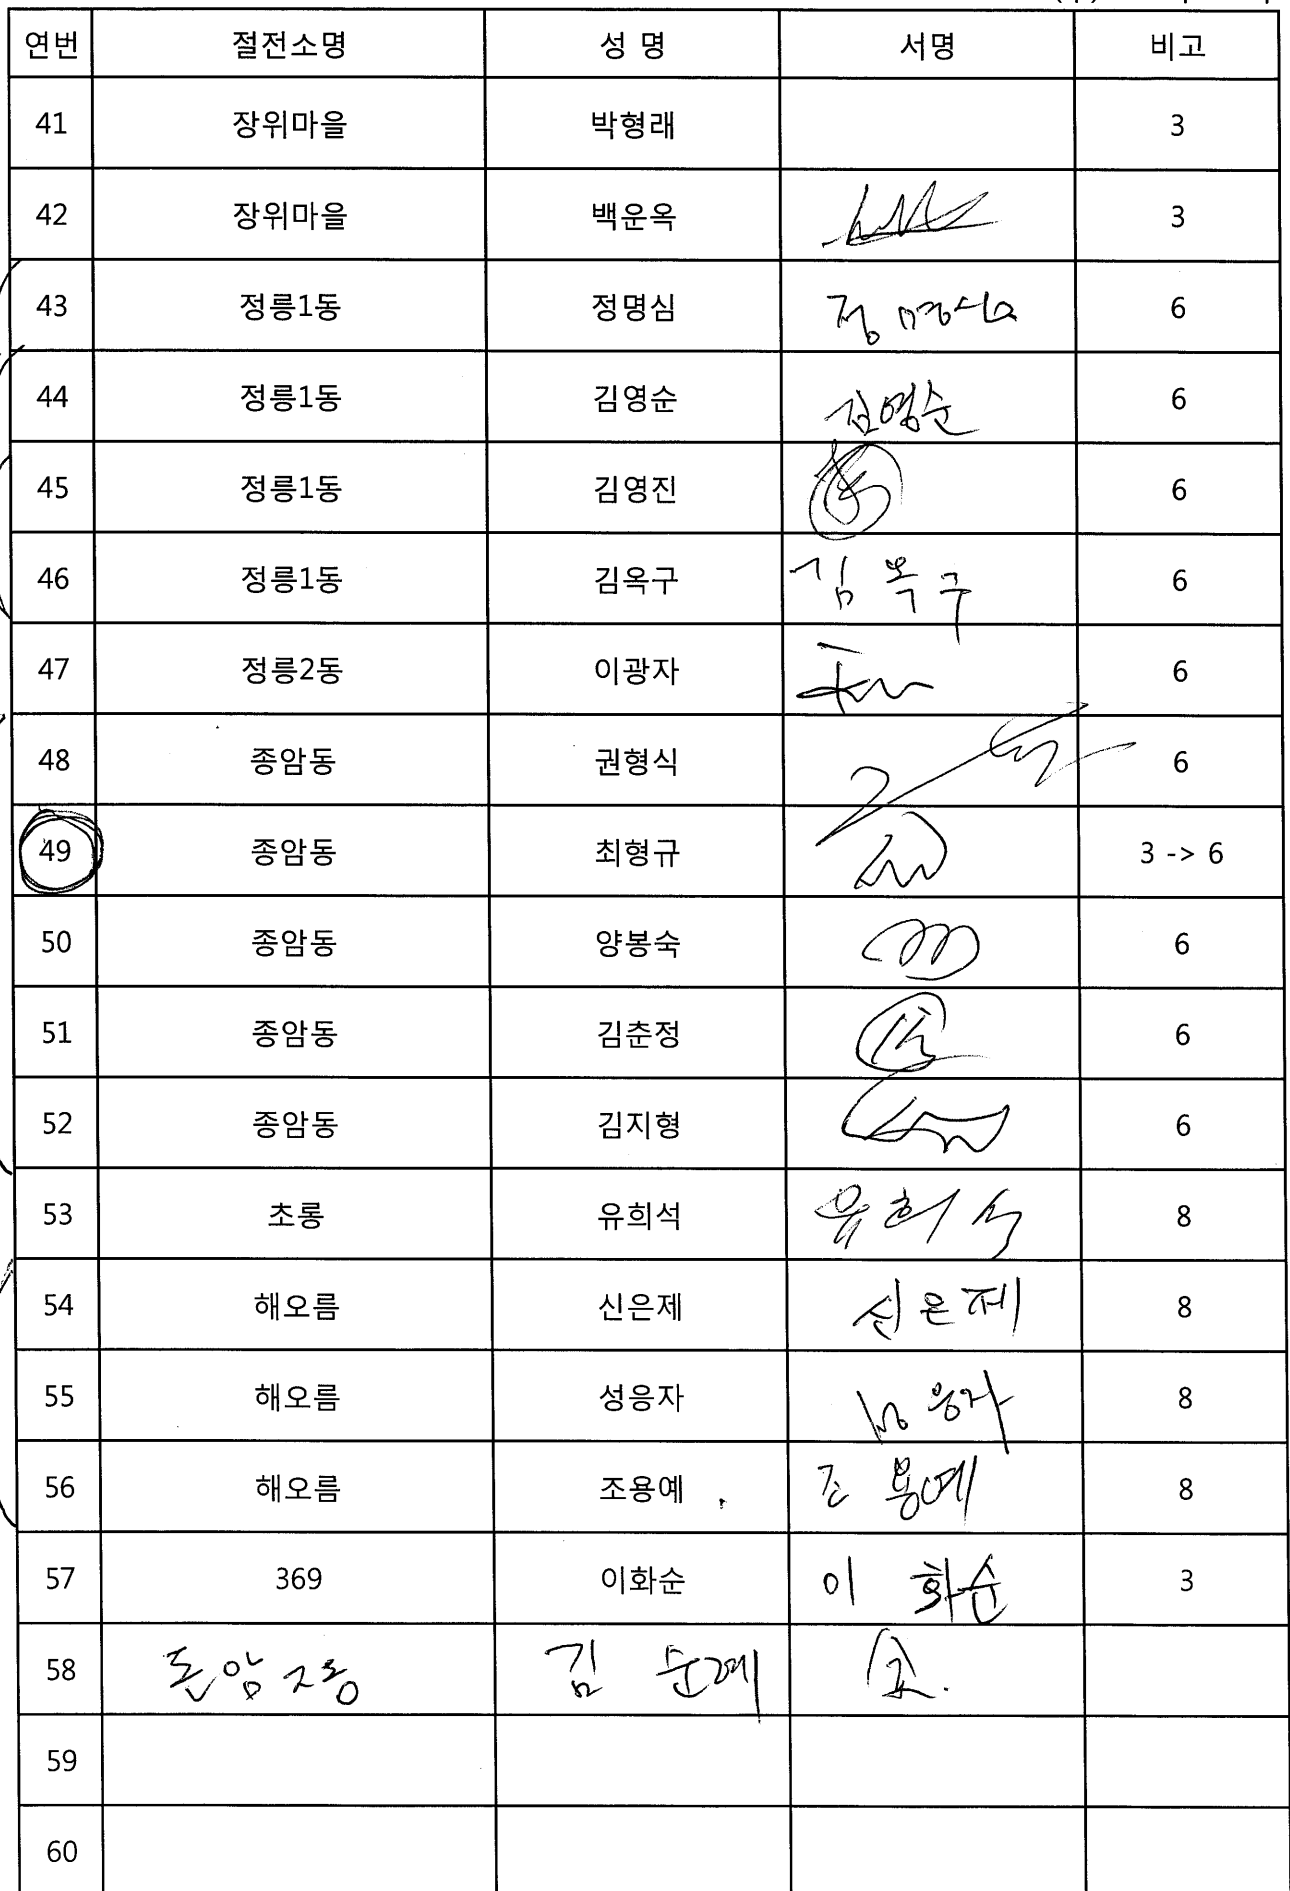 연번 절전소명 성 명 서명 비고
41 장위마을 박형래 3
42 장위마을 백운옥 3
43 정릉1동 정명심 정명심 6
44 정릉1동 김영순 김영순 6
45 정릉1동 김영진 6
46 정릉1동 김옥구 김옥구 6
47 정릉2동 이광자 6
48 종암동 권형식 6
49 종암동 최형규 3 -> 6
50 종암동 양봉숙 6
51 종암동 김춘정 6
52 종암동 김지형 6
53 초롱 유희석 유희석 8
54 해오름 신은제 신은제 8
55 해오름 성응자 성응자 8
56 해오름 조용예 조용예 8
57 369 이화순 이 화순 3
58 돈암2동 김순례
59
60